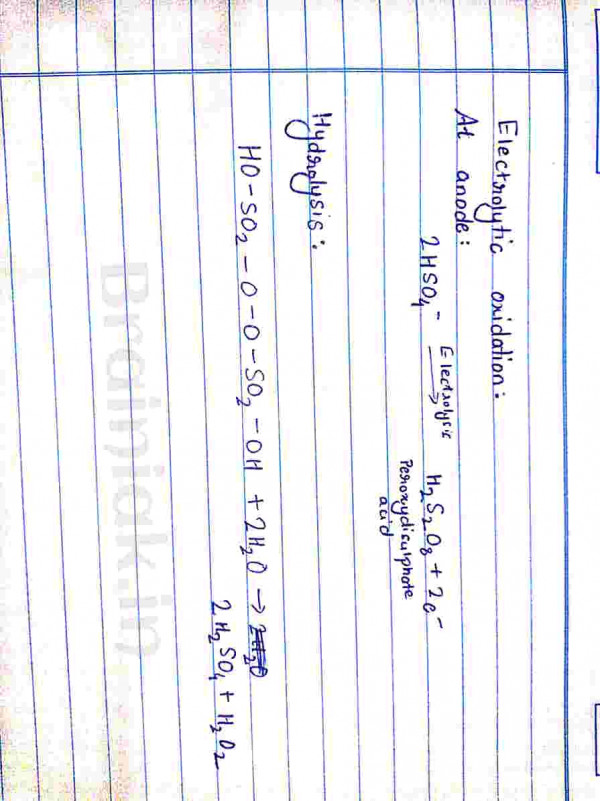 Electrolytic oxidation:
At anode:
2HSO₄⁻ Electrolysis → H₂S₂O₈ + 2e⁻
Peroxydisulphate
acid
Hydrolysis:
HO-SO₂-O-O-SO₂-OH + 2H₂O →
2H₂SO₄ + H₂O₂
Brainiak.in